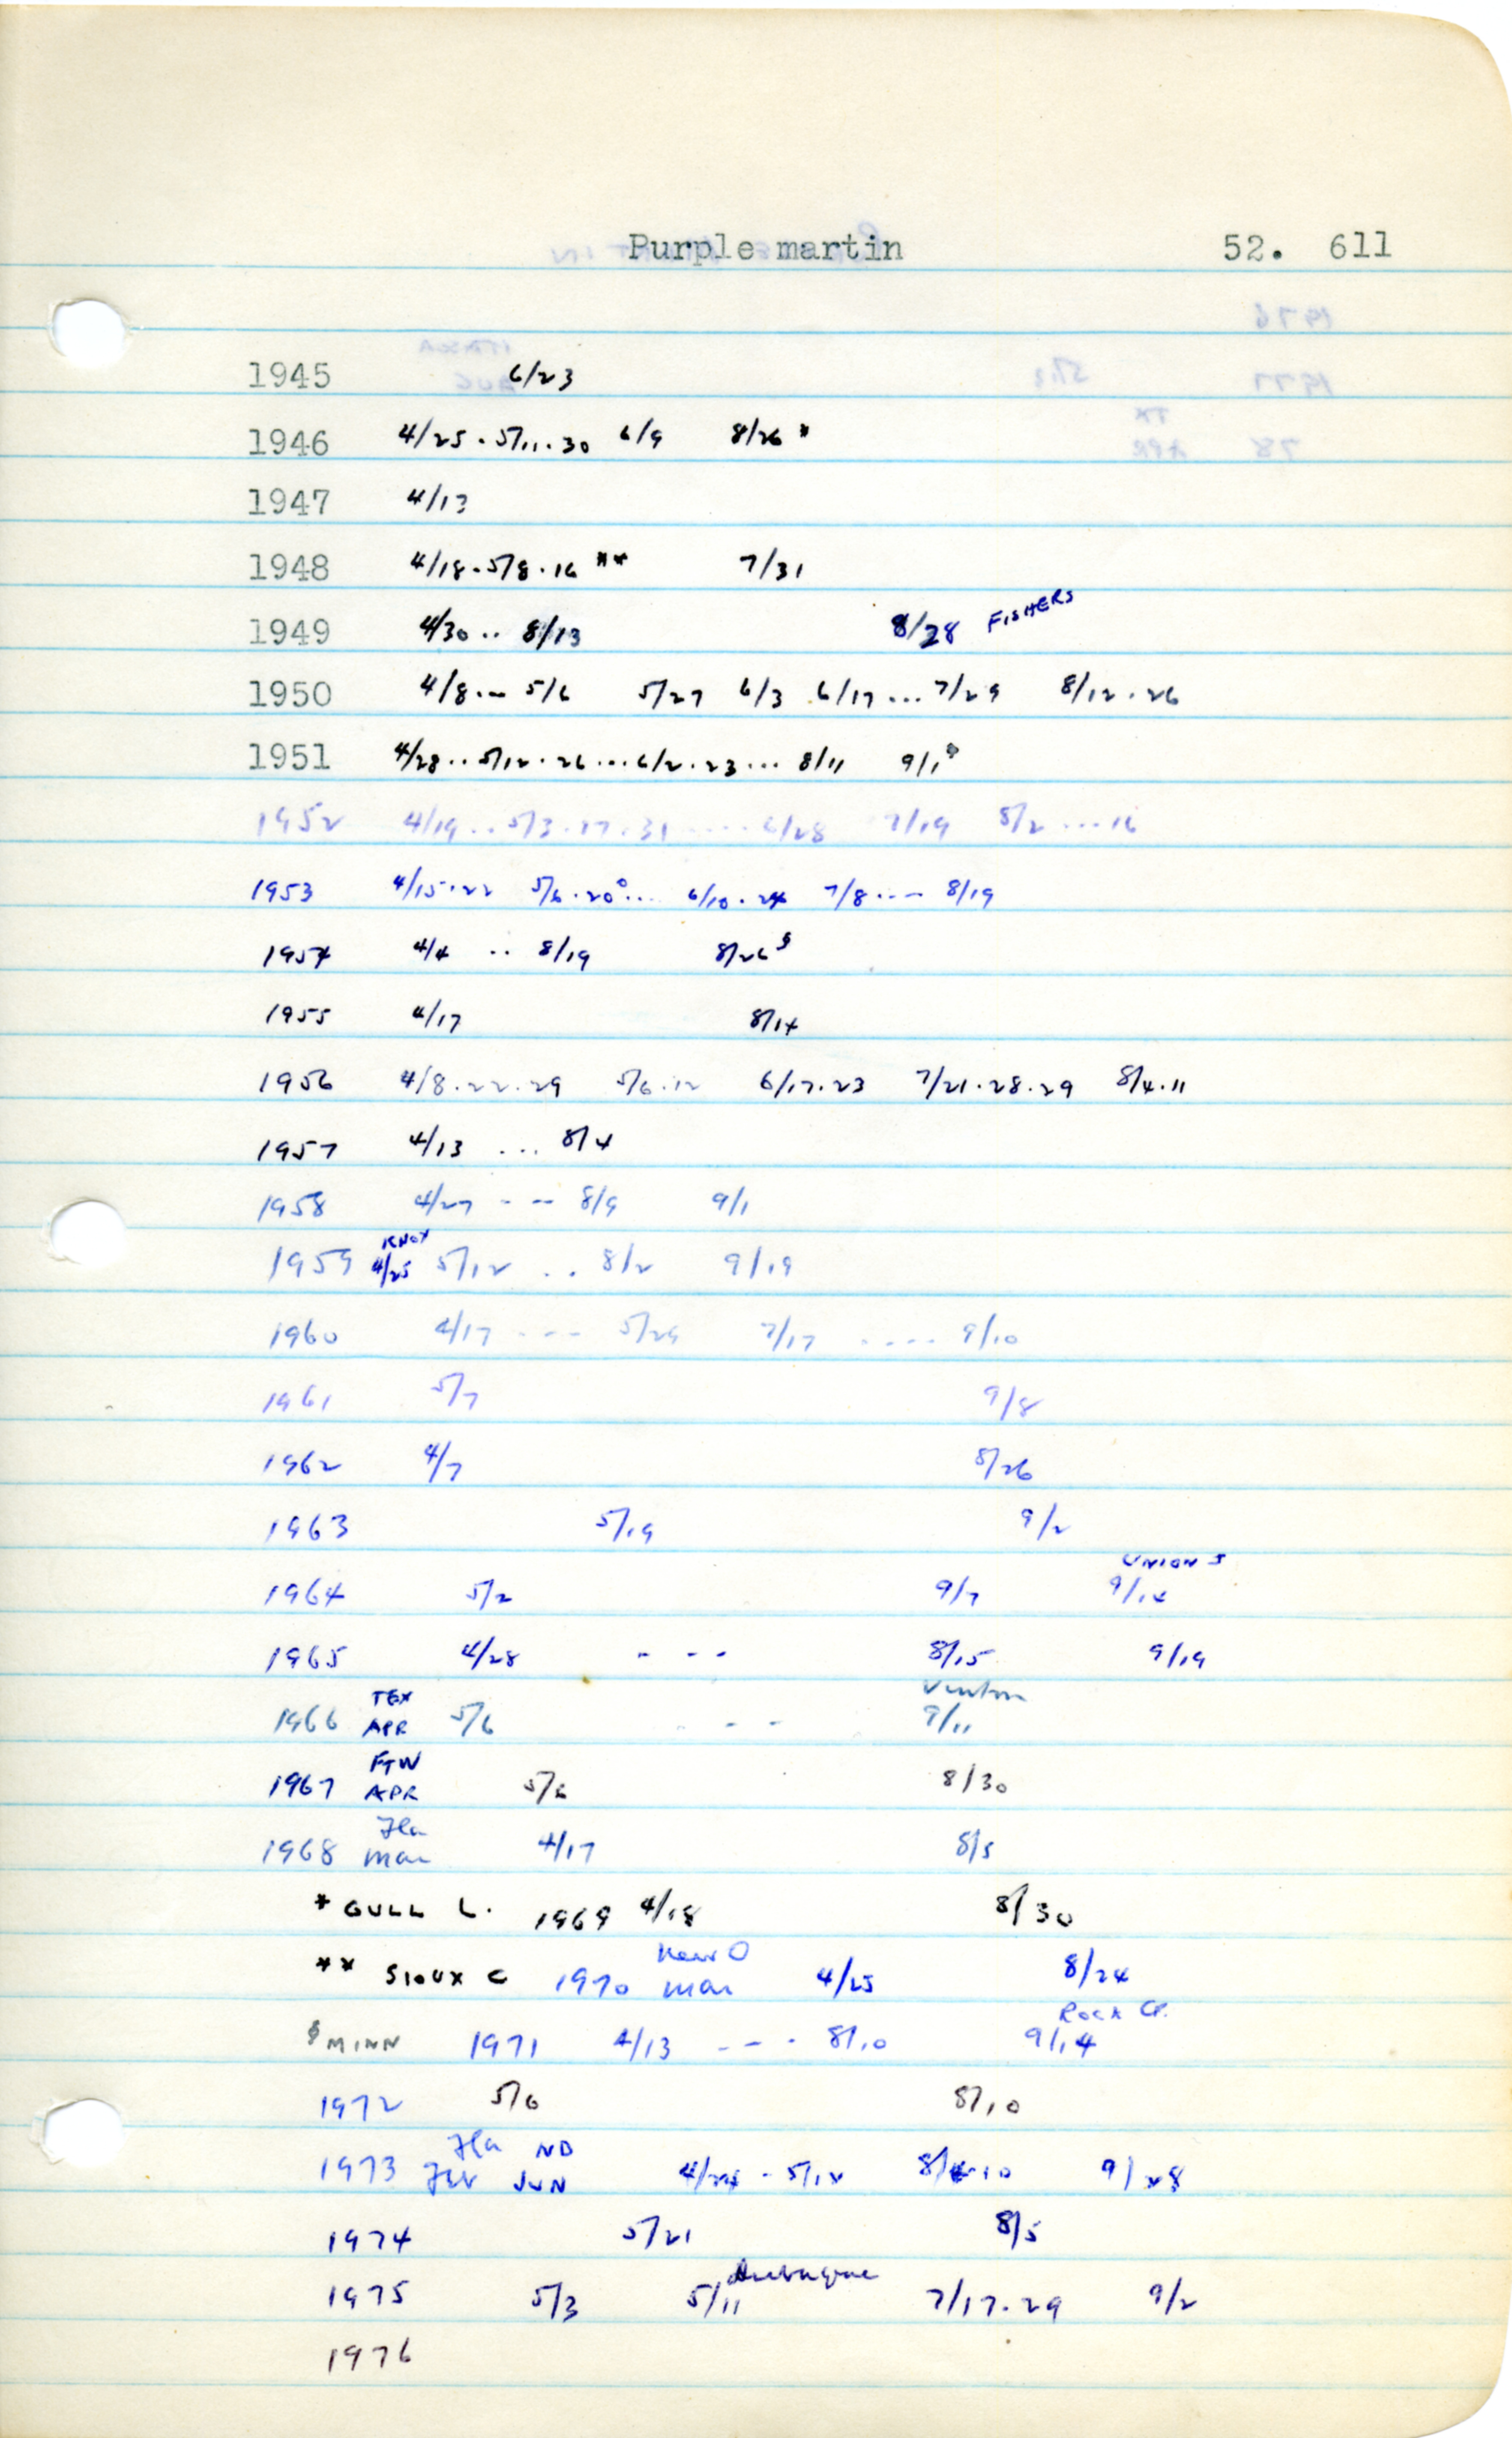 Purple martin 52. 611
1945 6/23
1946 4/25 . 5/11 . 30 6/9 8/26 *
1947 4/13
1948 4/18 . 5/8 . 16 ** 7/31
1949 4/30 .. 8/13 8/28 FISHERS
1950 4/8 ... 5/6 5/27 6/3 6/17 ... 7/29 8/12 . 26
1951 4/28 .. 5/12 . 26 ... 6/2 . 23 ... 8/11 9/1 $
1952 4/19 .. 5/3 . 17 . 31 ..... 6/28 7/19 8/2 .... 16
1953 4/15 . 22 5/6 . 20° ... 6/10 . 24 7/8 .... 8/19
1954 4/4 .. 8/19 8/26 $
1955 4/17 8/14
1956 4/8 . 22 . 29 5/6 . 12 6/17 . 23 7/21 . 28 . 29 8/4 . 11
1957 4/13 ... 8/4
1958 4/27 - -- 8/9 9/1
KNOX
1959 4/25 5/12 .. 8/2 9/19
1960 4/17 - - - 5/29 7/17 .... 9/10
1961 5/7 9/8
1962 4/7 8/26
1963 5/19 9/2
UNION S
1964 5/2 9/7 9/14
1965 4/28 - - - 8/15 9/19
TEX Vinton
1966 APR 5/6 - - - 9/11
FTW
1967 APR 5/6 8/30
Fla
1968 Mar 4/17 8/5
* GULL L. 1969 4/18 8/30
New O
** SIOUX C 1970 Mar 4/25 8/24
Rock Cr.
$ MINN 1971 4/13 - - - 8/10 9/14
1972 5/6 8/10
Fla ND
1973 JUN 4/24 - 5/12 10 9/28
1974 5/21 8/5
Dubuque
1975 5/3 5/11 7/17 . 29 9/2
1976